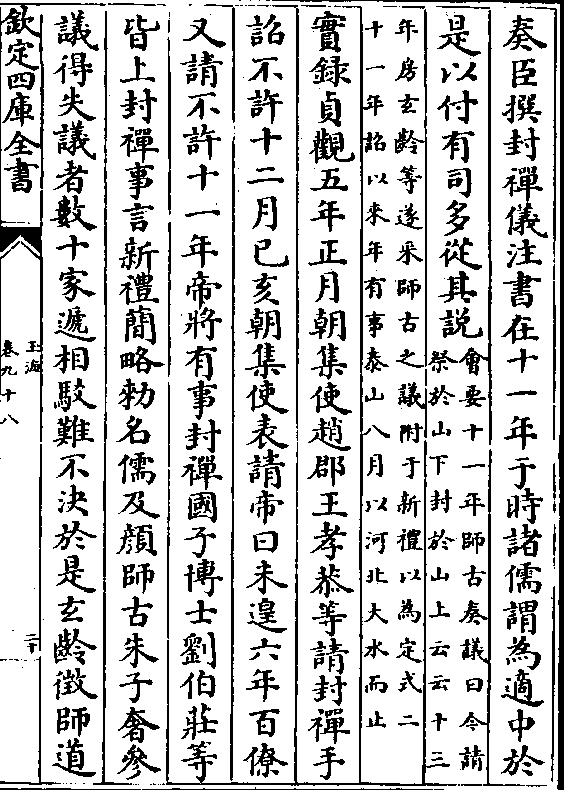 奏臣撰封禪儀注書在十一年于時諸儒謂為適中於
是以付有司多從其說
會要十一年師古奏議曰今請
祭於山下封於山上云云十三
年房玄齡等遂采師古之議附于新禮以為定式二
十一年詔以來年有事泰山八月以河北大水而止
實録貞觀五年正月朝集使趙郡王孝恭等請封禪手
詔不許十二月己亥朝集使表請帝曰未遑六年百僚
又請不許十一年帝將有事封禪國子博士劉伯莊等
皆上封禪事言新禮簡略勑名儒及顔師古朱子奢參
議得失議者數十家遞相駮難不決於是玄齡徵師道
欽定四庫全書
玉海
卷九十八
二十